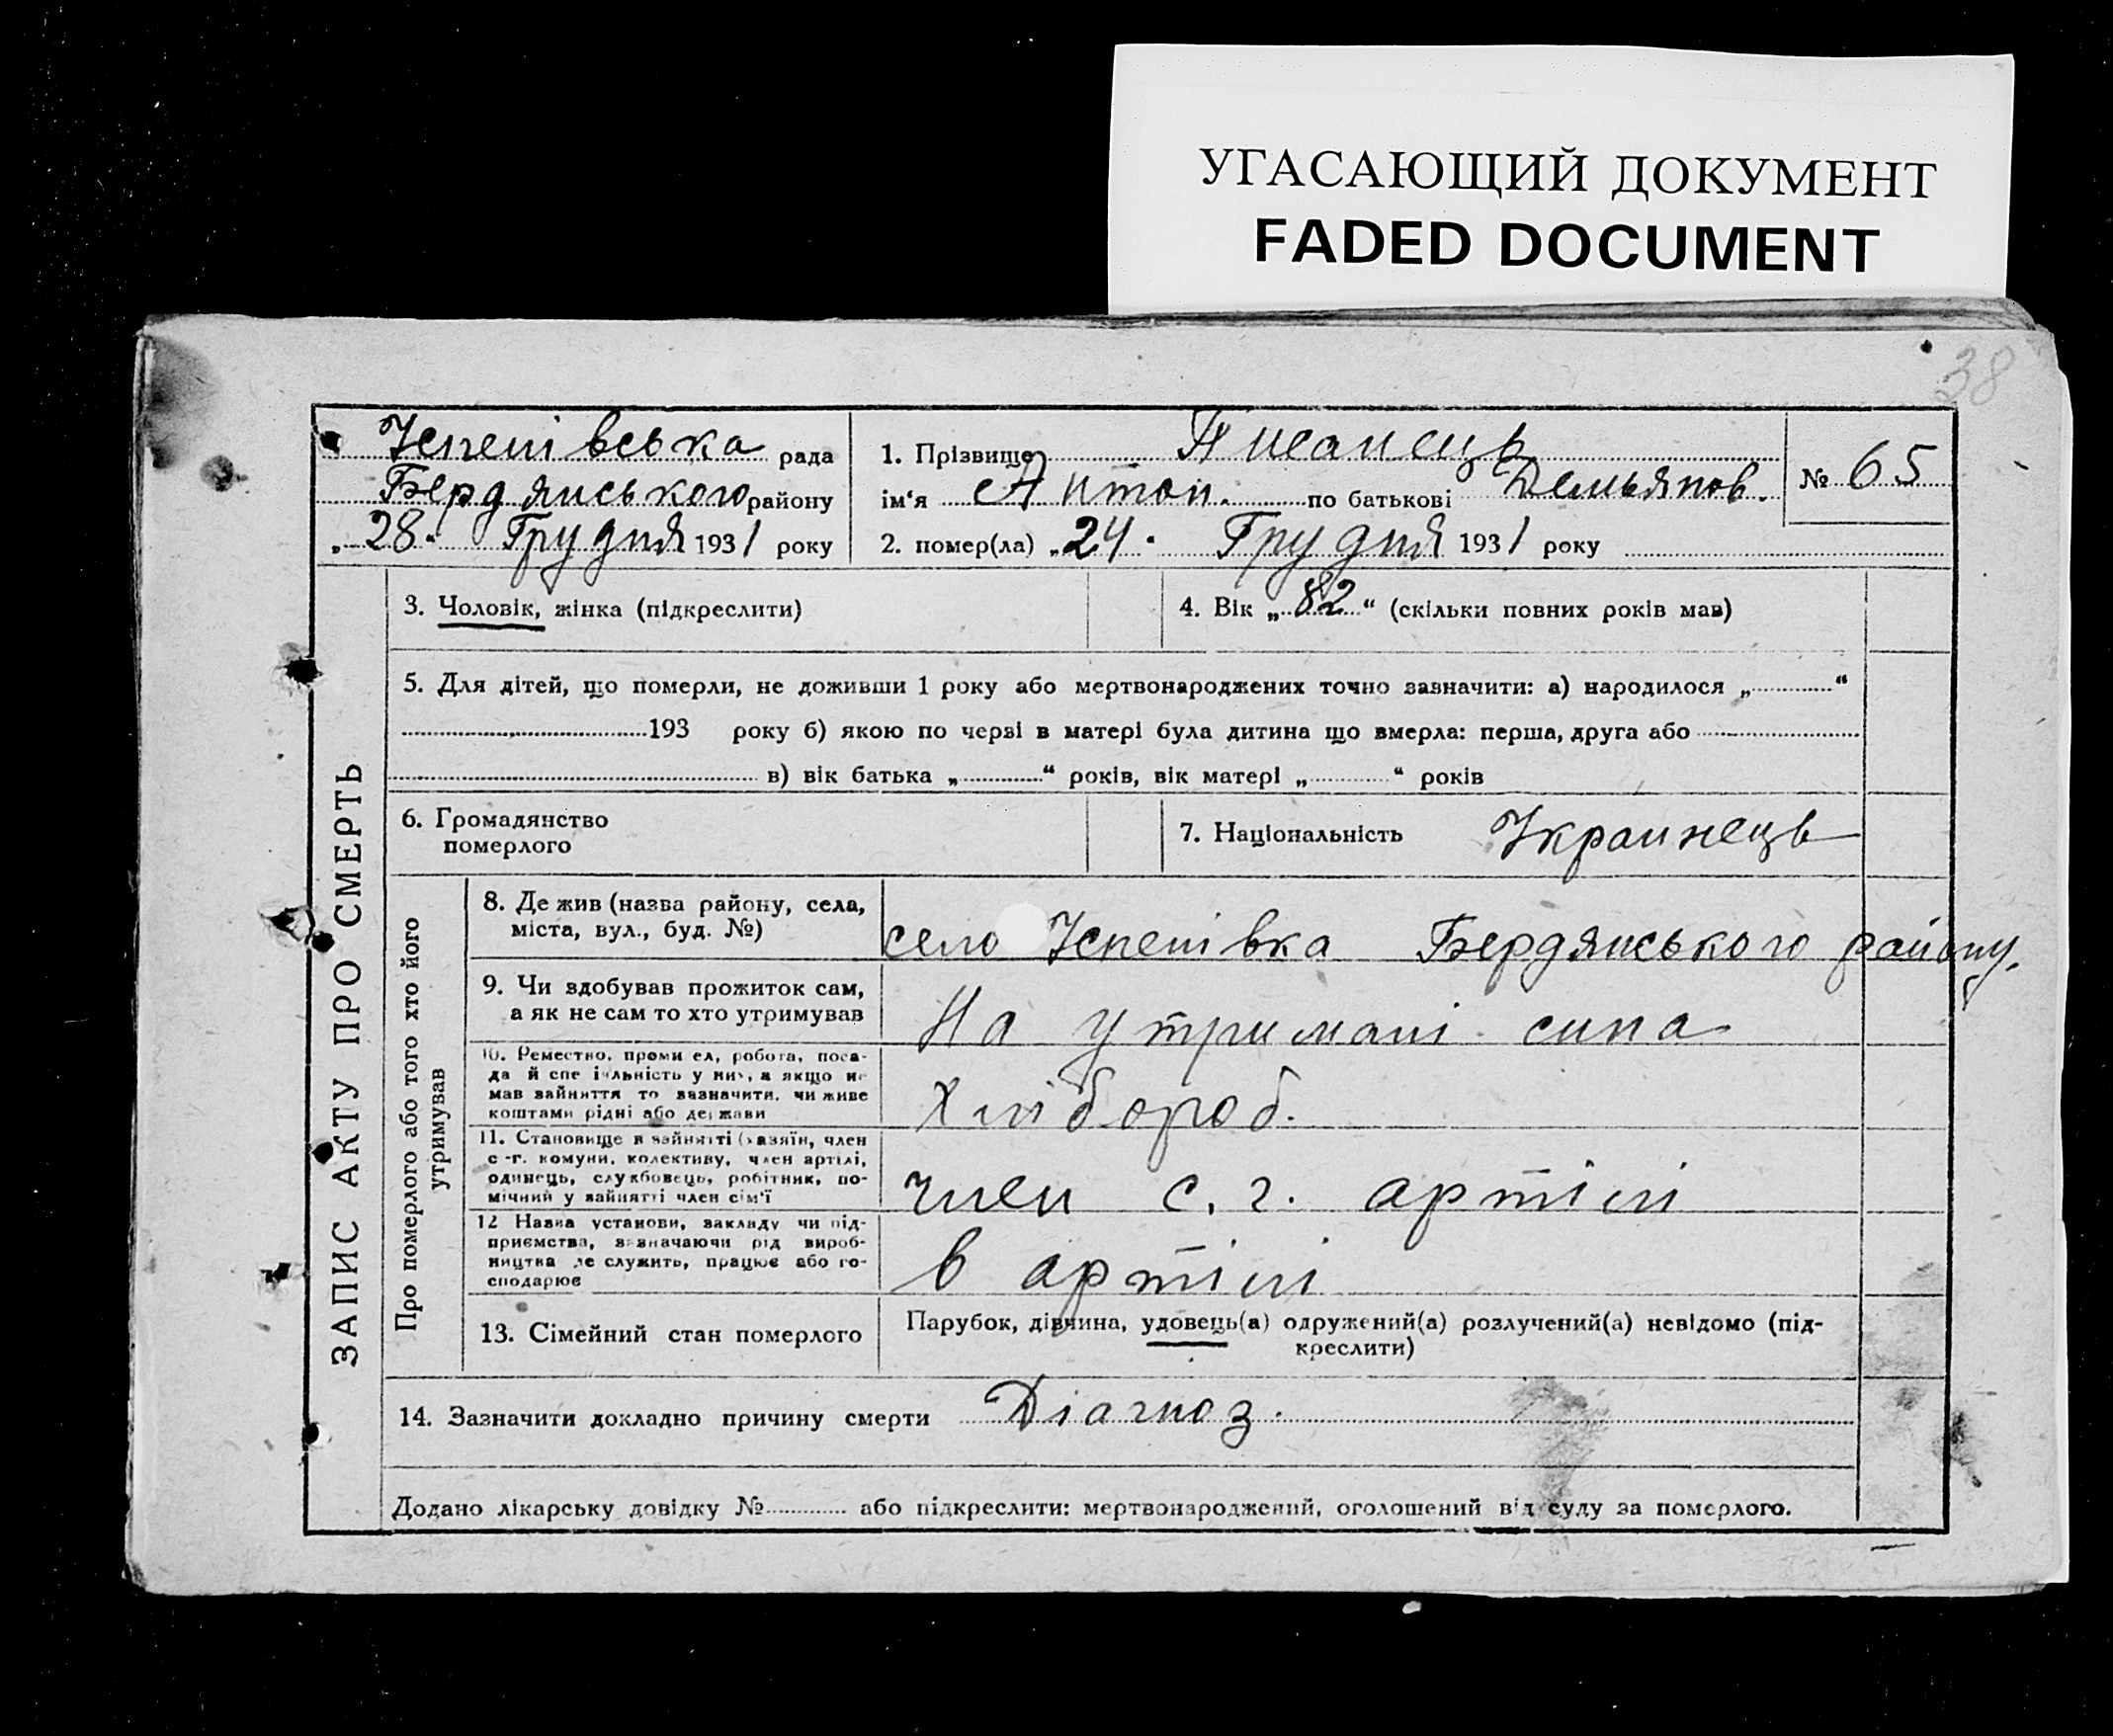 УГАСАЮЩИЙ ДОКУМЕНТ
FADED DOCUMENT
38
Успенівська рада
Бердянського району
„28" Грудня 1931 року
1. Прізвище
ім'я Антон. по батькові Демьянов.
2. помер(ла) „24" Грудня 1931 року
№ 65
ЗАПИС АКТУ ПРО СМЕРТЬ
3. Чоловік, жінка (підкреслити)
4. Вік „82" (скільки повних років мав)
5. Для дітей, що померли, не доживши 1 року або мертвонароджених точно зазначити: а) народилося „ "
193 року б) якою по черзі в матері була дитина що вмерла: перша, друга або
в) вік батька „ " років, вік матері „ " років
6. Громадянство
померлого
7. Національність Украинець
Про померлого або того хто його
утримував
8. Де жив (назва району, села,
міста, вул., буд. №)
село Успенівка Бердянського району.
9. Чи здобував прожиток сам,
а як не сам то хто утримував
На утримані сина
10. Ремество, промисел, робота, поса-
да й спеціяльність у них, а якщо не
мав зайняття то зазначити, чи живе
коштами рідні або держави
Хлібороб.
11. Становище в зайнятті (хазяїн, член
с.-г. комуни, колективу, член артілі,
одинець, службовець, робітник, по-
мічний у зайнятті член сім'ї
член с. г. артілі
12 Назва установи, закладу чи під-
приємства, зазначаючи рід вироб-
ництва де служить, працює або го-
сподарює
в артілі
13. Сімейний стан померлого
Парубок, дівчина, удовець(а) одружений(а) розлучений(а) невідомо (під-
креслити)
14. Зазначити докладно причину смерти Діагноз.
Додано лікарську довідку № або підкреслити: мертвонароджений, оголошений від суду за померлого.